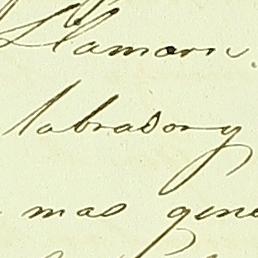 Llamarn
labrador y
mas gene